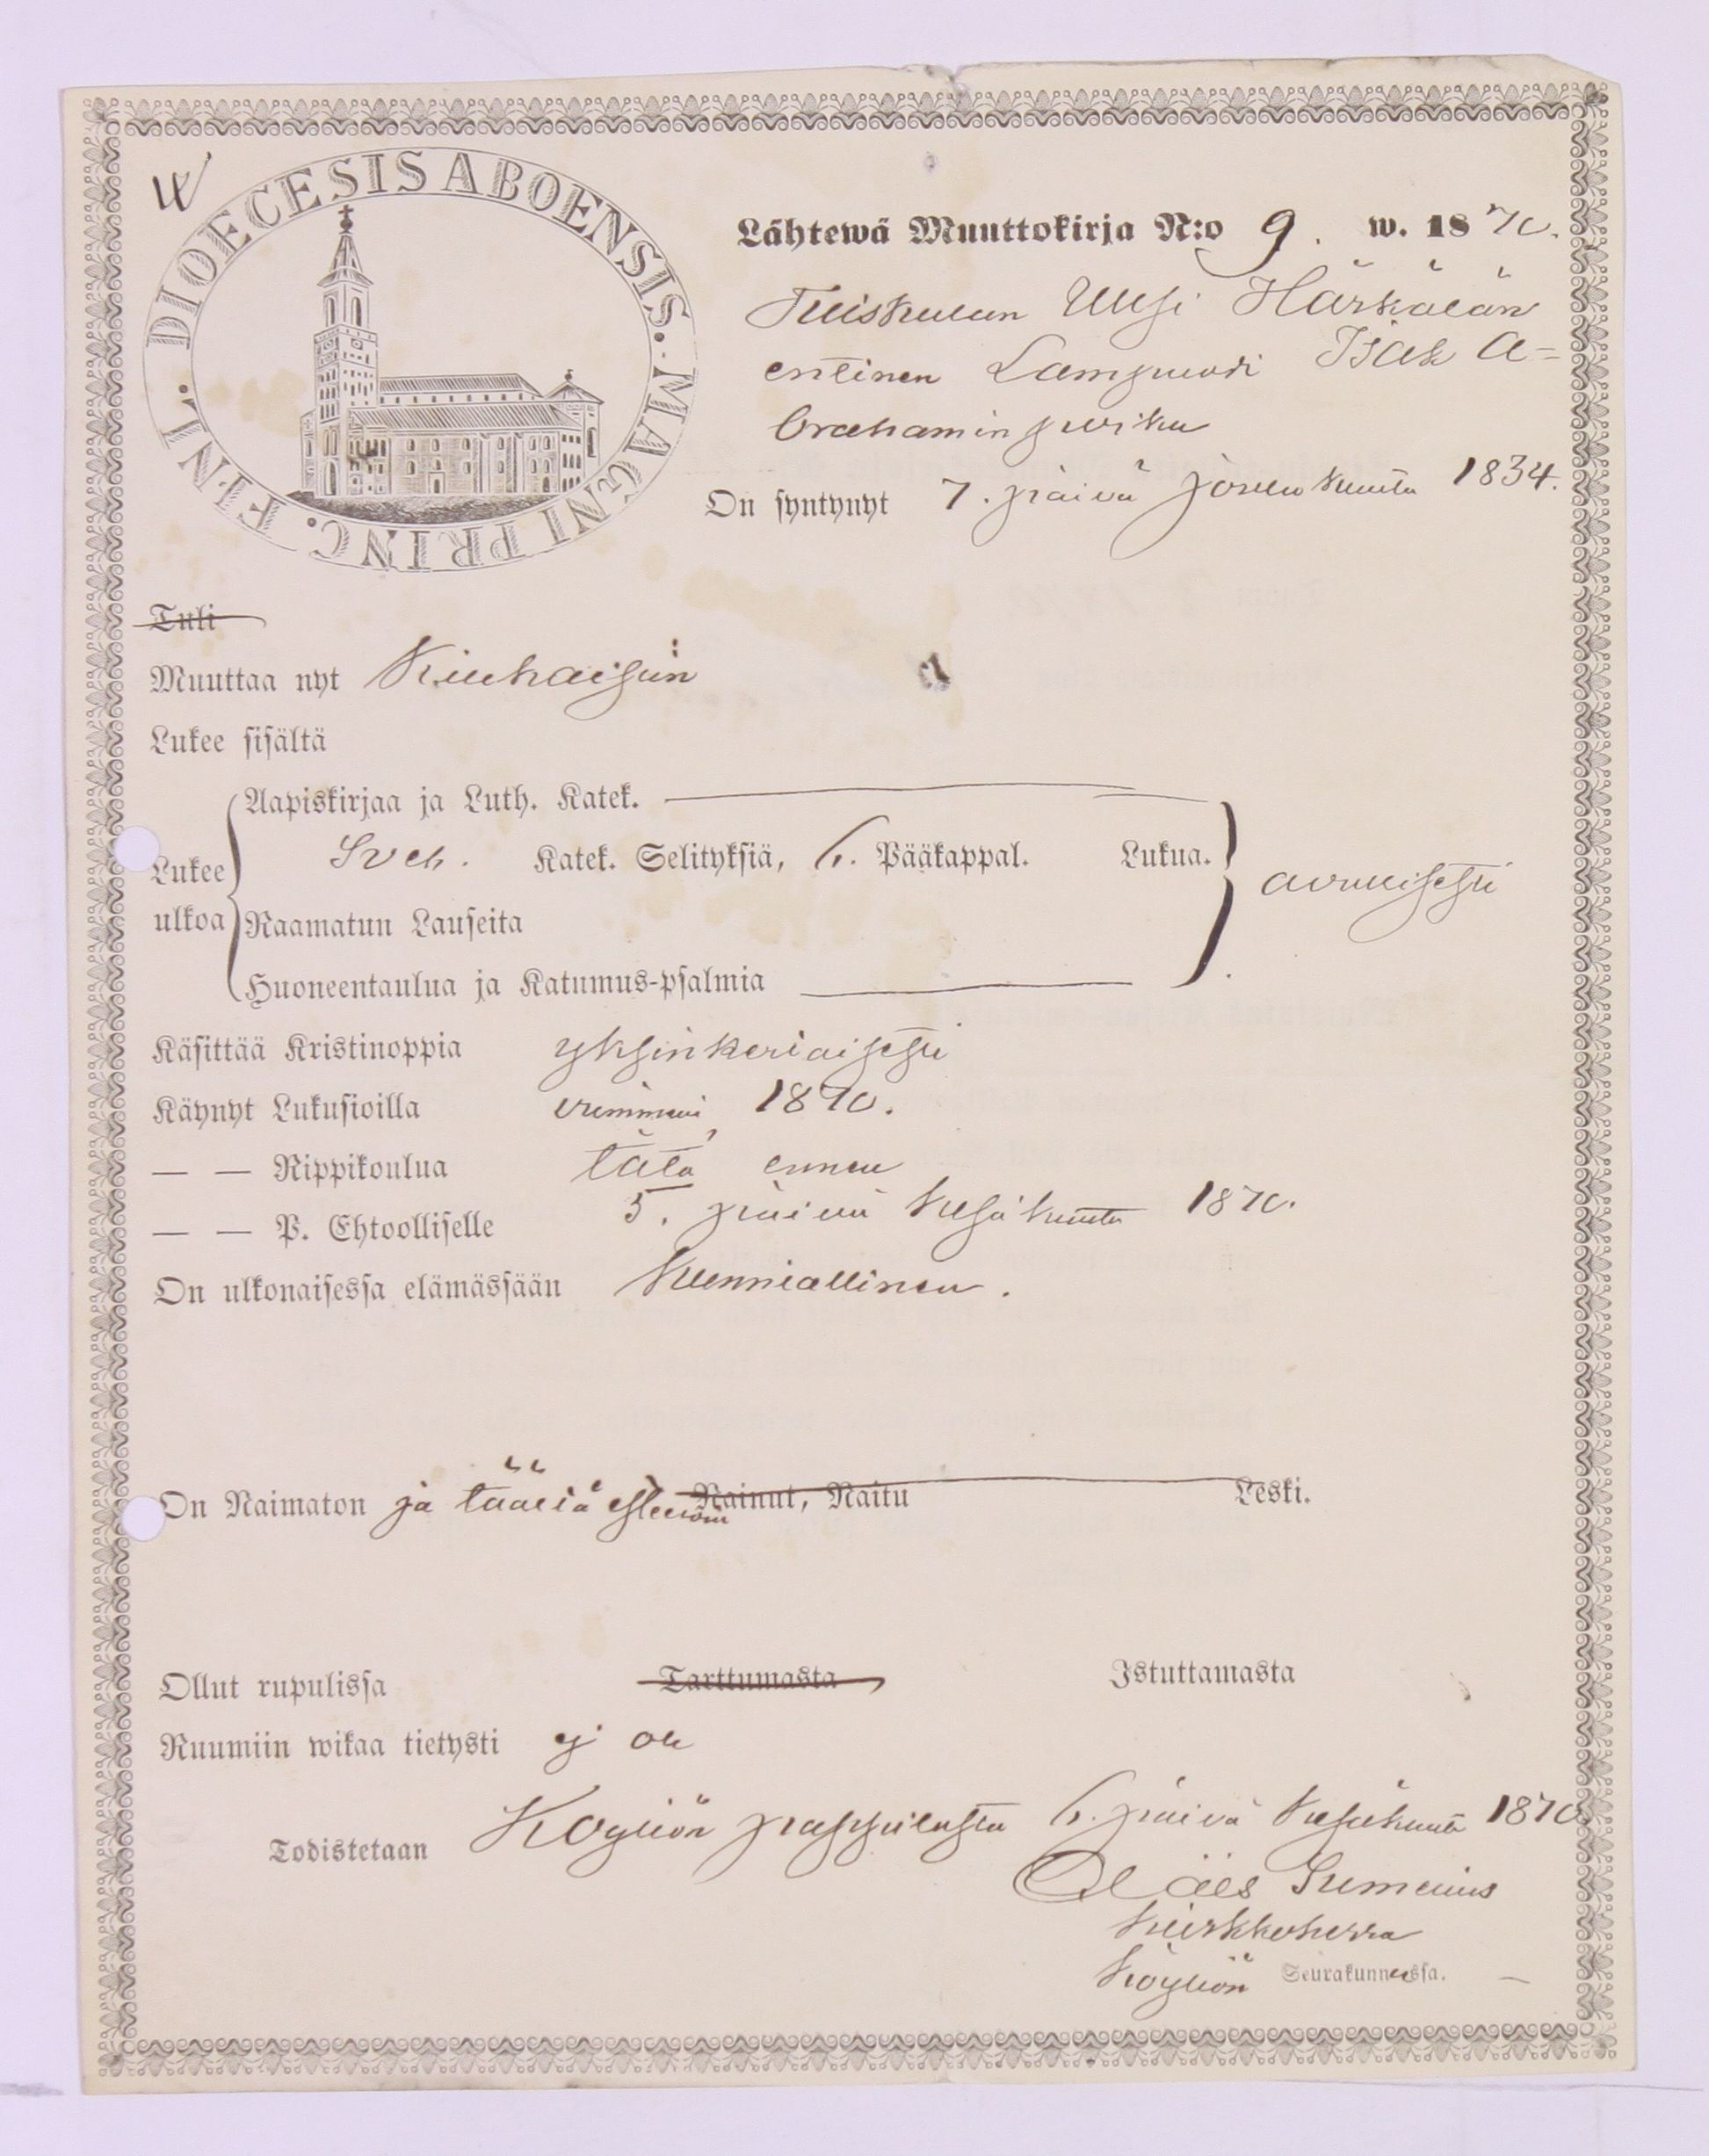 DIOECESIS ABOENSIS. MAGNI PRINC. FINL.
Lähtewä Muuttokirja N:o 9. w. 1870.
Tuiskulan Uusi Härkälän
entinen Lampuodi Isak A=
brahamin poika
On syntynyt 7. päivä joulukuuta 1834.
Tuli
Muuttaa nyt Kiukaisiin
Lukee sisältä
Aapiskirjaa ja Luth. Katek.
Lukee ulkoa Sveb. Katek. Selityksiä, 6. Pääkappal. Lukua.
Raamatun Lauseita
Huoneentaulua ja Katumus-psalmia
Käsittää Kristinoppia yksinkertaisesti
Käynyt Lukusioilla viimmein 1870.
— — Rippikoulua tätä ennen
— — P. Ehtoolliselle 5. päivä Kesäkuuta 1870.
On ulkonaisessa elämässään Kunniallinen.
On Naimaton ja täältä esteetöin Nainut, Naitu Leski.
Ollut rupulissa Tarttumasta Istuttamasta
Ruumiin wikaa tietysti ej ole
Todistetaan Köyliön pappilasta 6. päivä Kesäkuuta 1870.
Kirkkoherra
Köyliön Seurakunnassa.